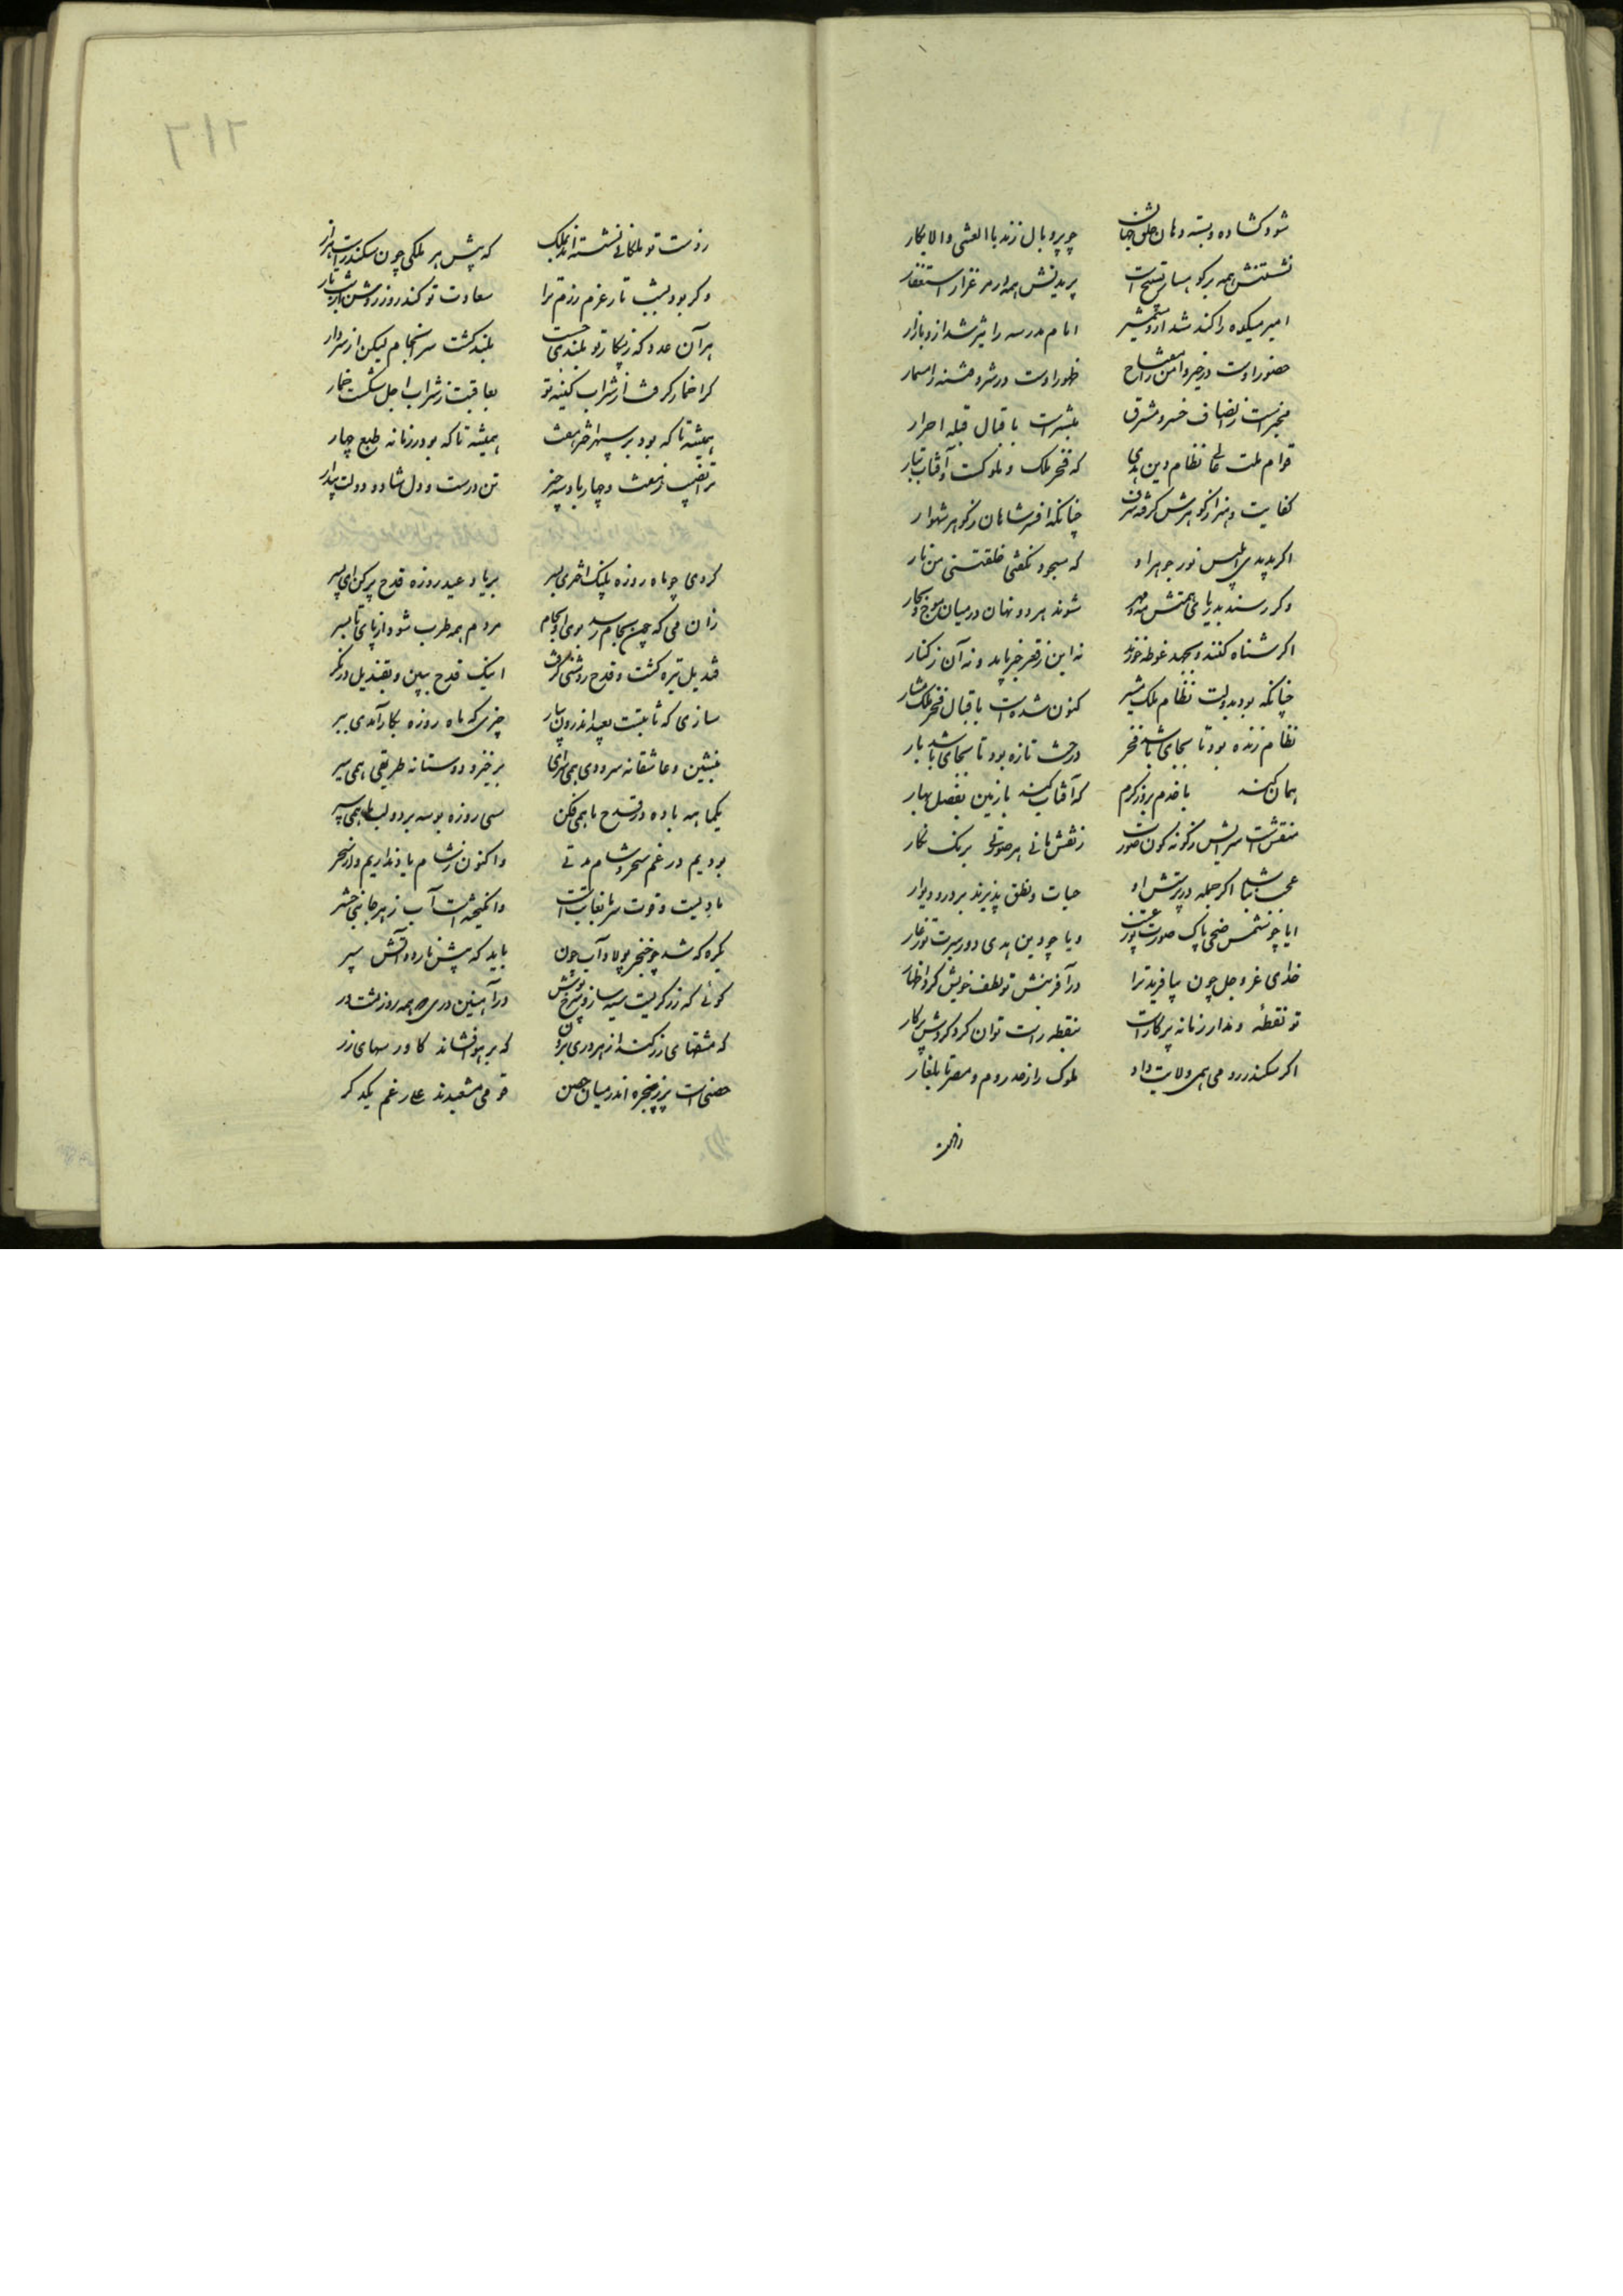 شود کشاده و بسته دهان خلق جهان چو پر و بال زند با العشی والابکار
نشستنش همه بر کوهسار تسبیح است پریدنش همه در مرغزار استغفار
امیر میکده را کند شد ازو شمشیر امام مدرسه را تیز شد ازو بازار
حضور اوست در خیر و امن را مفتاح ظهور اوست در شر و فتنه را مسمار
مخبرست ز انصاف خسرو مشرق مبشرست باقبال قبله احرار
قوام ملت عالی نظام دین هدی که فخر ملک و ملوکست و آفتاب تبار
کفایت و هنر از کوهرش کرفته شرف چنانکه افسر شاهان ز کوهر شهوار
اکر بدیدی ابلیس نور جوهر او که سجود نکفتی خلقتنی من نار
وکر رسند بدریای همتش مه و مهر شوند هر دو نهان در میان موج و بحار
اکر شناه کنند و بجهد غوطه خورند نه این ز قعر خبر یابد و نه آن ز کنار
چنانکه بود بدولت نظام ملک مشیر کنون شدست باقبال فخر ملک مشار
نظام زنده بود تا بجای باشد فخر درخت تازه بود تا بجای باشد بار
همان کند با خدم بروز کرم که آفتاب کند با زمین بفصل بهار
منقش است سرایش ز کونه کون صورت ز نقش مانی هر صورتی برنک نکار
عجب نباشد اکر جمله در پرستش او حیات و نطق پذیرند بر در و دیوار
ایا چو شمس ضحی پاک صورت تو ز عیب و یا چو دین هدی دور سیرت تو ز عار
خدای عز و جل چون بیافرید ترا در آفرینش تو لطف خویش کرد اظهار
تو نقطهٔ و مدار زمانه پرکارست بنقطه راست توان کرد کردش پرکار
اکر سکندر رومی همی ولایت داد ملوک را ز حد روم و مصر تا بلغار
ز دست تو
۲۱۲
ز دست تو ملکانی نشسته اند بملک که پیش هر ملکی چون سکندرست هزار
وکر بود بشب تار عزم رزم ترا سعادت تو کند روز روشن از شب تار
هر آن عدو که ز پیکار تو بلندی جست بلند کشت سرانجام لیکن از سر دار
کرا خمار کرفت از شراب کینه تو بعاقبت ز شراب اجل شکست خمار
همیشه تا که بود بر سپهر اختر هفت همیشه تا که بود در زمانه طبع چهار
ترا نصیب ز هفت و چهار باد سه چیز تن درست و دل شاد و دولت بیدار
کردی چو ماه روزه بنیک اختری بسر بر یاد عید روزه قدح پر کن ای پسر
زان می که چون بجام رسد بوی او بکام مردم همه طرب شود از پای تا بسر
قندیل تیره کشت و قدح روشنی کرفت اینک قدح ببین و بقندیل در نکر
سازی که ثابتست بعید اندرون بیار چیزی که ماه روزه بکار آمدی ببر
بنشین و عاشقانه سرودی همی سرای برخیز و دوستانه طریقی همی سپر
یکماهه باده در قدح ما همی فکن سی روزه بوسه بر دو لب ما همی سپر
بودیم در غم سحر و شام مدتی واکنون ز شام یاد نداریم و از سحر
بادیست و قوت سرما بغایت است وانکیخته است آب ز هر جانبی حشر
یکره که شد چو خنجر پولاد آب جون باید که پیش ما رود آتش سپر
کوئی که زرکریست سیه ساز و سرخ پوش در آهنین دری همه روز نشسته در
که مشقهای زر کند از هر دری برون که بر هوا فشاند کاورسهای زر
حصنی است پر ز پنجره اندر میان حصن قومی مشعبدند علی رغم یکدکر